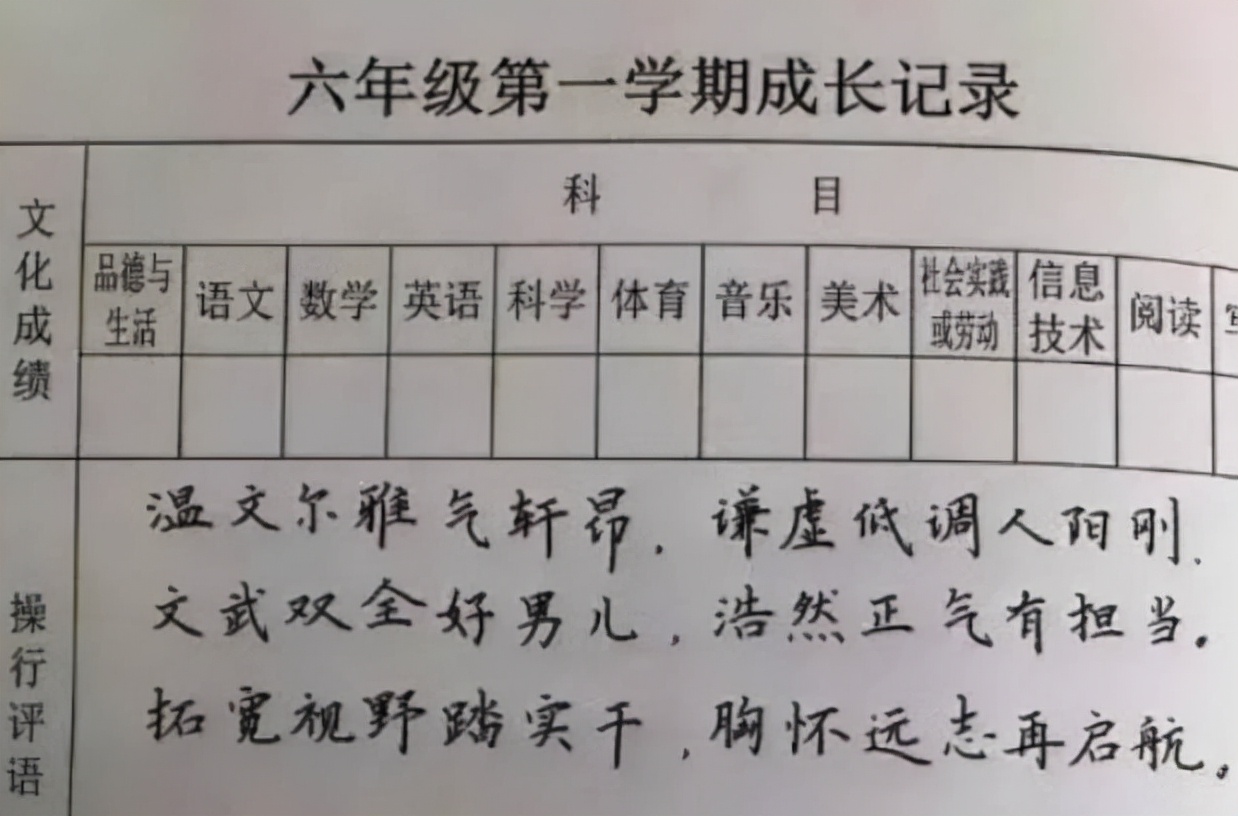 六年级第一学期成长记录
文化成绩
科 目
品德与生活 语文 数学 英语 科学 体育 音乐 美术 社会实践或劳动 信息技术 阅读
操行评语
温文尔雅气轩昂，谦虚低调人阳刚.
文武双全好男儿，浩然正气有担当。
拓宽视野踏实干，胸怀远志再启航。